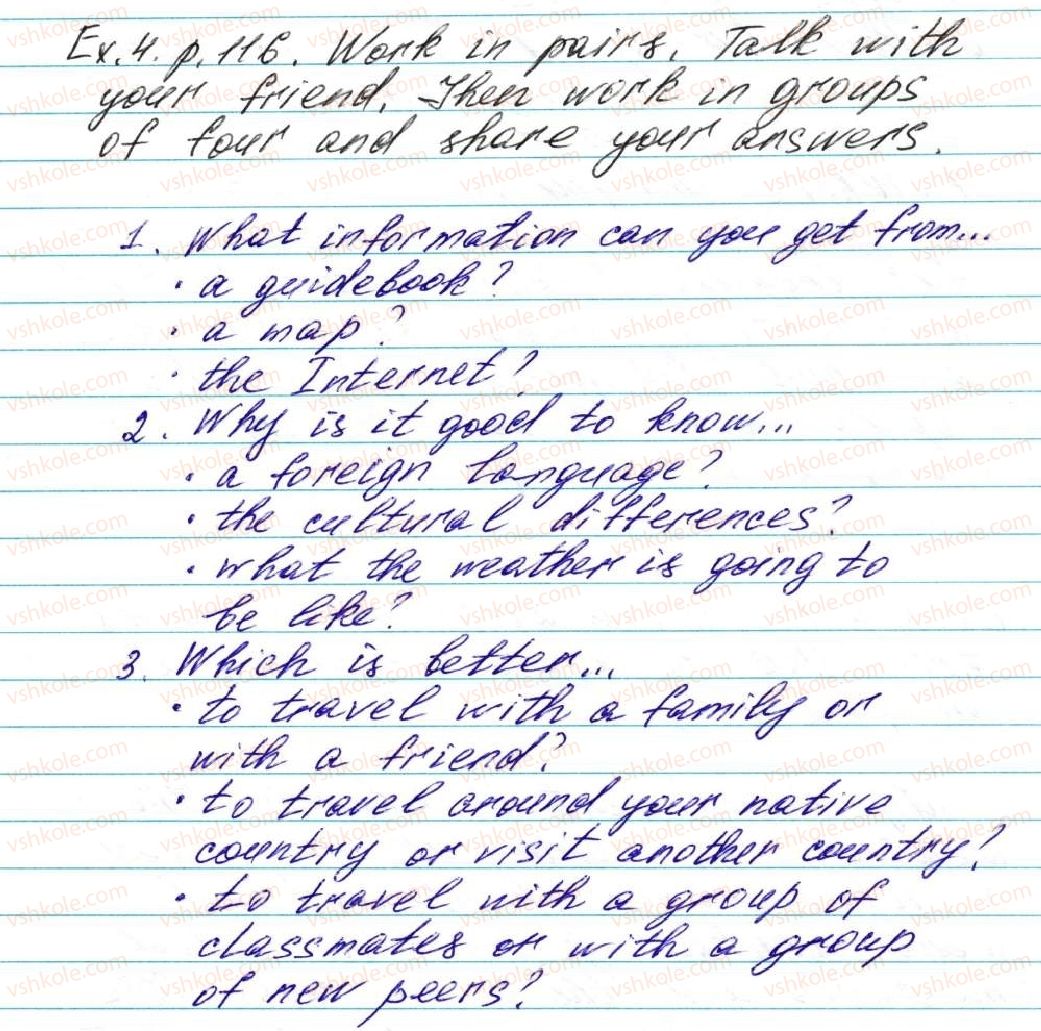 Ex. 4. p. 116. Work in pairs. Talk with
your friend. Then work in groups
of four and share your answers.
1. What information can you get from...
• a guidebook?
• a map?
• the Internet?
2. Why is it good to know...
• a foreign language?
• the cultural differences?
• what the weather is going to
be like?
3. Which is better...
• to travel with a family or
with a friend?
• to travel around your native
country or visit another country?
• to travel with a group of
classmates or with a group
of new peers?
vshkole.com